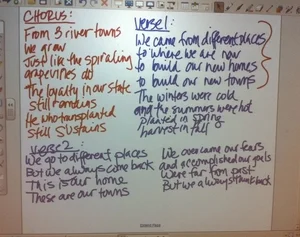 CHORUS:
From 3 river towns
We grew
Just like the spiraling
grapevines do
The loyalty in our state
Still remains
He who transplanted
Still Sustains
Verse 1:
We came from different places
to where we are now
to build our new homes
to build our new towns
The winters were cold
and the summers were hot
planted in spring
harvest in fall
Verse 2:
We go to different places
But we always come back
This is our home
These are our towns
We overcame our fears
and accomplished our goals
Were far from past
But we always think back